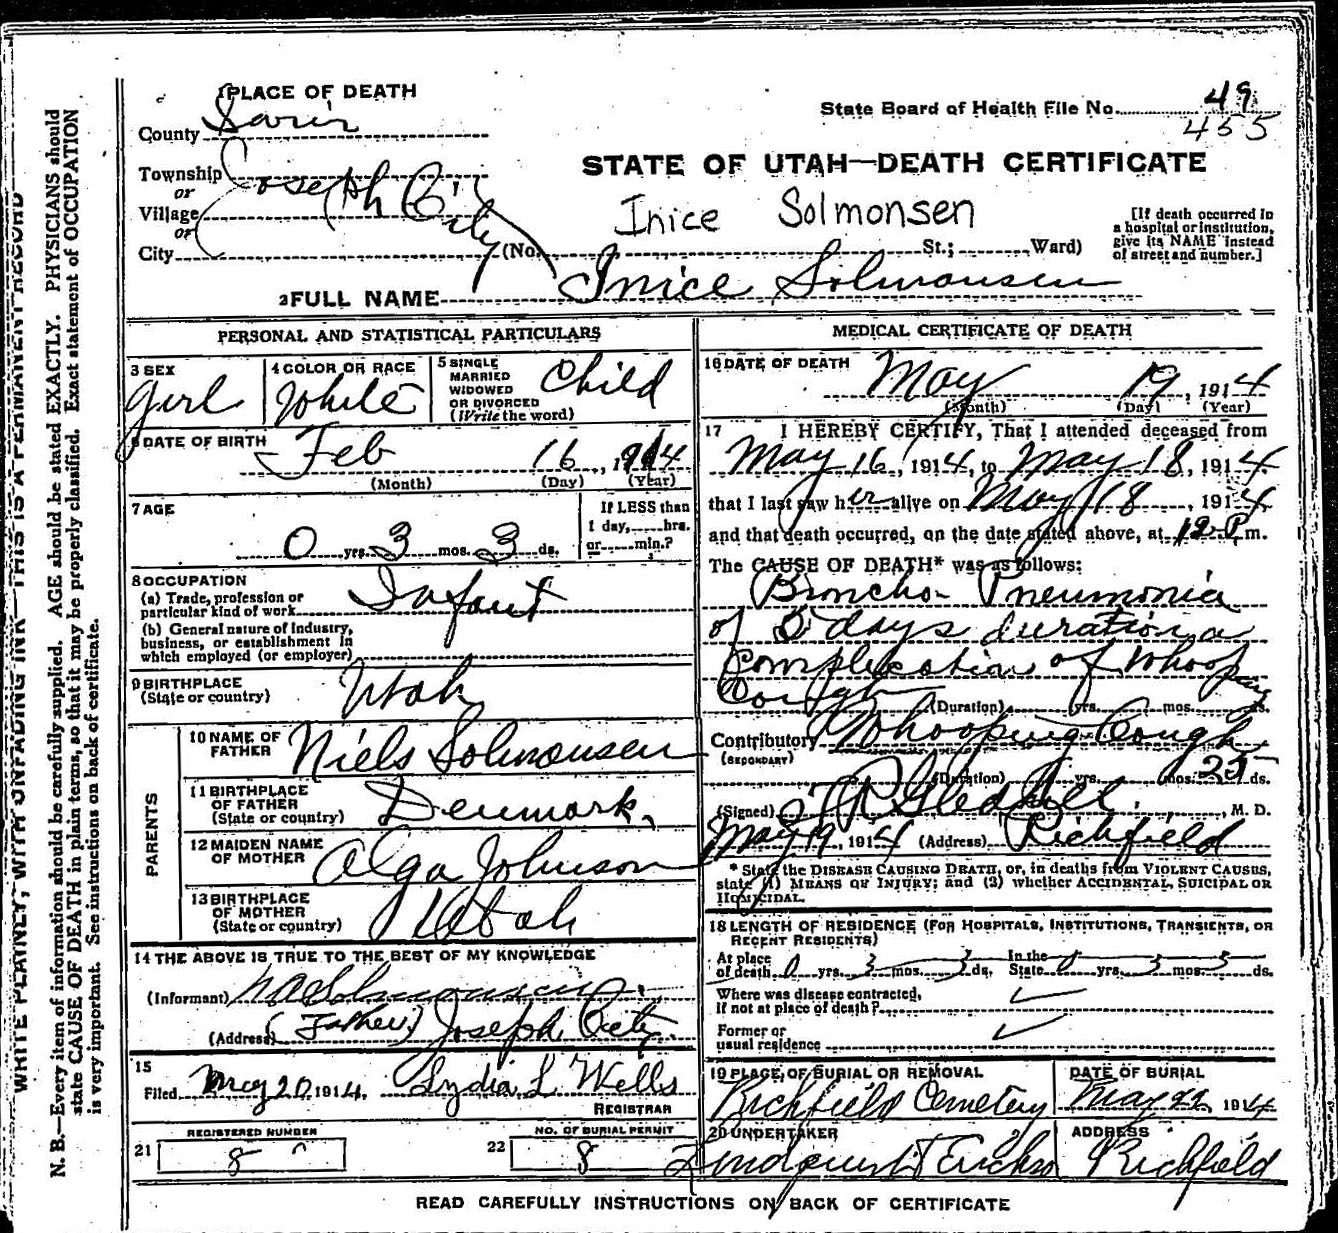 1 PLACE OF DEATH
State Board of Health File No. 49
455
County Sevier
STATE OF UTAH—DEATH CERTIFICATE
Township
or
Village
or
City
Joseph City
Inice Solmonsen
(No. St.; Ward)
[If death occurred in
a hospital or institution,
give its NAME instead
of street and number.]
2 FULL NAME Inice Solmonsen
PERSONAL AND STATISTICAL PARTICULARS
3 SEX
girl
4 COLOR OR RACE
White
5 SINGLE
MARRIED
WIDOWED
OR DIVORCED
(Write the word)
Child
6 DATE OF BIRTH
Feb 16, 1914
(Month) (Day) (Year)
7 AGE
0 yrs. 3 mos. 3 ds.
If LESS than
1 day, hrs.
or min.?
8 OCCUPATION
(a) Trade, profession or
particular kind of work
Infant
(b) General nature of Industry,
business, or establishment in
which employed (or employer)
9 BIRTHPLACE
(State or country)
Utah
PARENTS
10 NAME OF
FATHER
Niels Solmonsen
11 BIRTHPLACE
OF FATHER
(State or country)
Denmark.
12 MAIDEN NAME
OF MOTHER
Olga Johnson
13 BIRTHPLACE
OF MOTHER
(State or country)
Utah
14 THE ABOVE IS TRUE TO THE BEST OF MY KNOWLEDGE
(Informant) Solmonsen
(Father)
(Address) Joseph City
15
Filed May 20 1914, Lydia L Wells
REGISTRAR
REGISTERED NUMBER
21 8
NO. OF BURIAL PERMIT
22 8
MEDICAL CERTIFICATE OF DEATH
16 DATE OF DEATH
May 19, 1914
(Month) (Day) (Year)
17 I HEREBY CERTIFY, That I attended deceased from
May 16, 1914, to May 18, 1914
that I last saw her alive on May 18, 1914
and that death occurred, on the date stated above, at 12 P. m.
The CAUSE OF DEATH* was as follows:
Broncho- Pneumonia
of 5 days duration a
Complication of Whooping
Cough
(Duration) yrs. mos. ds.
Contributory Whooping Cough
(SECONDARY)
(Duration) yrs. mos. 25 ds.
(Signed) Gledhill, M. D.
May 19, 1914 (Address) Richfield
* State the DISEASE CAUSING DEATH, or, in deaths from VIOLENT CAUSES,
state (1) MEANS OF INJURY; and (2) whether ACCIDENTAL, SUICIDAL OR
HOMICIDAL.
18 LENGTH OF RESIDENCE (FOR HOSPITALS, INSTITUTIONS, TRANSIENTS, OR
RECENT RESIDENTS)
At place
of death 0 yrs. 3 mos. 3 ds.
In the
State 0 yrs. 3 mos. 3 ds.
Where was disease contracted,
If not at place of death?
Former or
usual residence
19 PLACE OF BURIAL OR REMOVAL
Richfield Cemetery
DATE OF BURIAL
May 22, 1914
20 UNDERTAKER
ADDRESS
Richfield
READ CAREFULLY INSTRUCTIONS ON BACK OF CERTIFICATE
WRITE PLAINLY, WITH UNFADING INK—THIS IS A PERMANENT RECORD
N. B.—Every item of information should be carefully supplied. AGE should be stated EXACTLY. PHYSICIANS should
state CAUSE OF DEATH in plain terms, so that it may be properly classified. Exact statement of OCCUPATION
is very important. See instructions on back of certificate.